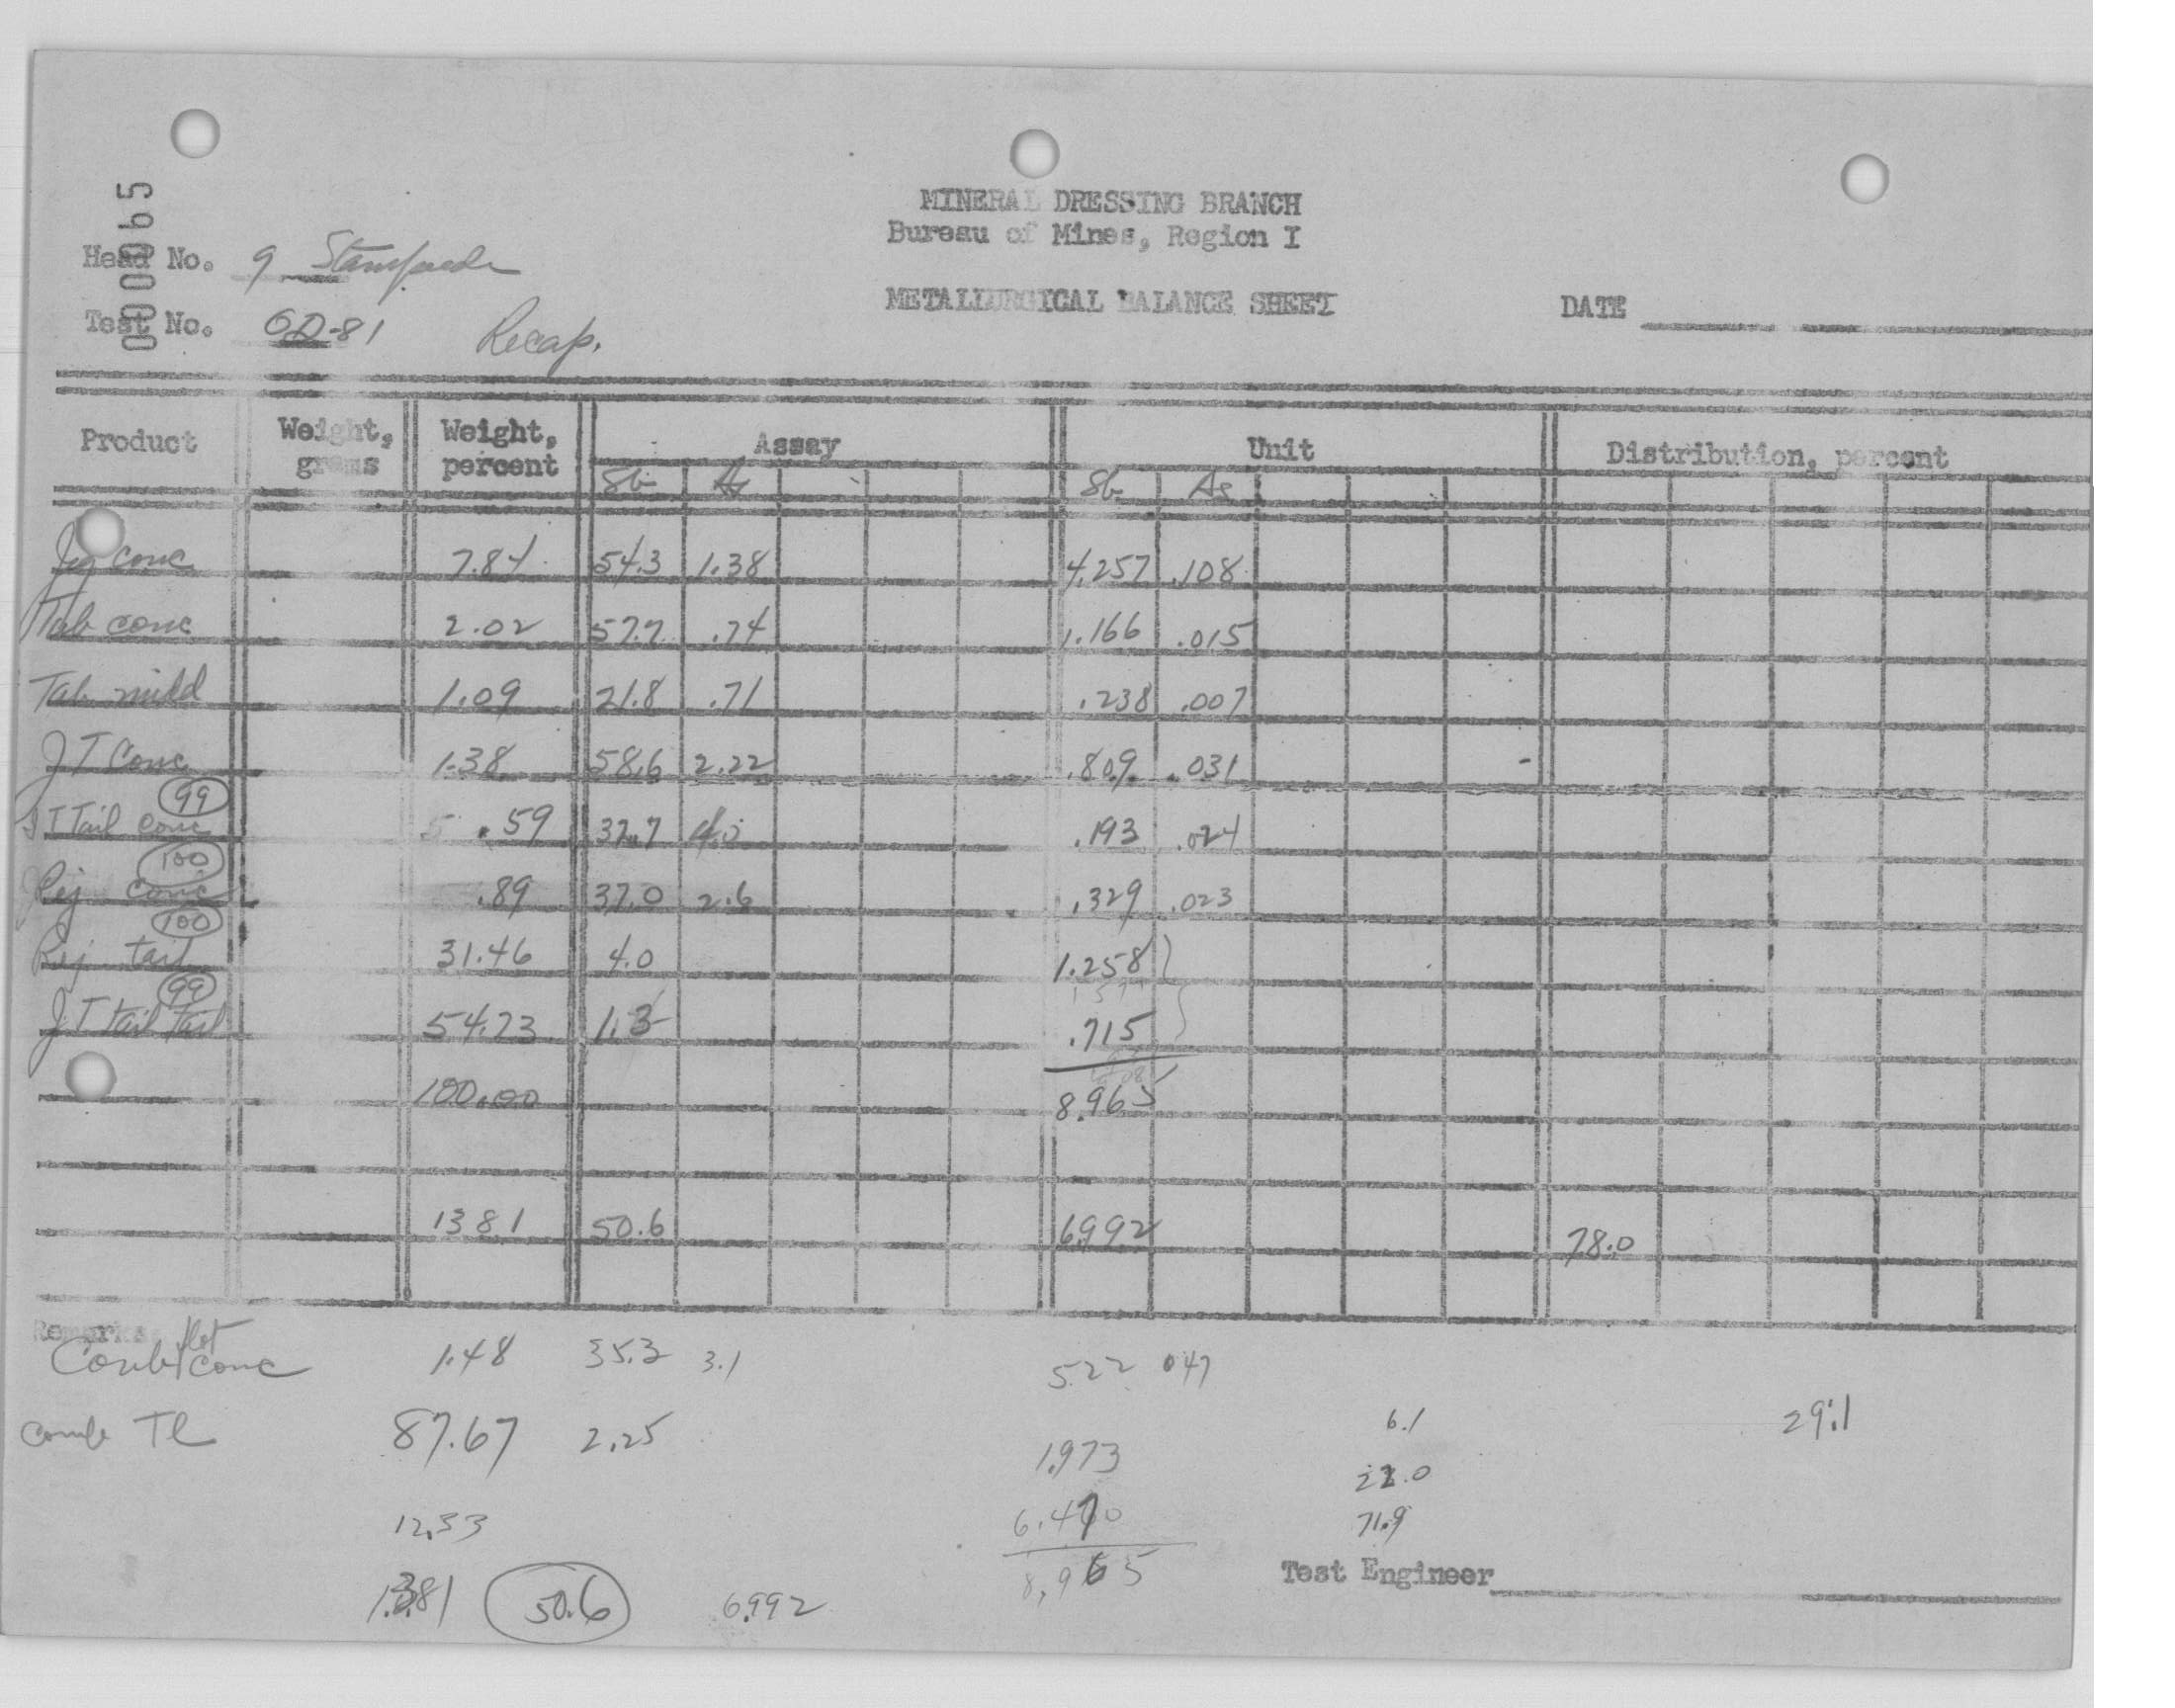 000065
MINERAL DRESSING BRANCH
Bureau of Mines, Region I
Head No. 9 Stampede
METALLURGICAL BALANCE SHEET
DATE
Test No. OD-81 Recap.
Product Weight, grams Weight, percent Assay Unit Distribution, percent
Sb As Sb As
Jig conc 7.84 54.3 1.38 4.257 .108
Tab conc 2.02 57.7 .74 1.166 .015
Tab midd 1.09 21.8 .71 .238 .007
J T Conc 1.38 58.6 2.22 .809 .031
99
J T Tail conc .59 32.7 4.0 .193 .024
100
Rej conc .89 37.0 2.6 .329 .023
100
Rej tail 31.46 4.0 1.258
99
J T tail tail 54.73 1.3 .715
100.00 8.965
13.81 50.6 6.992 78.0
Remarks
Comb flot conc 1.48 35.3 3.1 .522 .047
comb Tl 87.67 2.25 1.973 6.1 29.1
22.0
12.33 6.470 71.9
8.965
Test Engineer
13.81 50.6 6.992